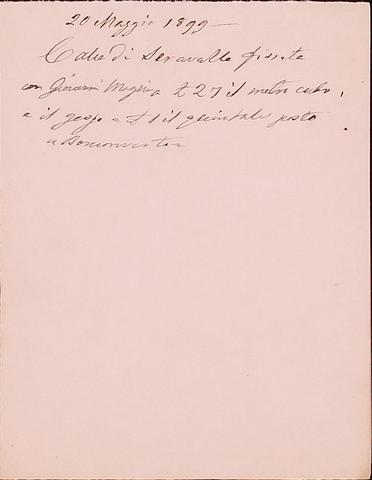 20 Maggio 1899
Calce di Seravalle fissata
con Giovanni a £ 27 il metro cubo,
e il gesso a £ il quintale posto
a Buonconvento